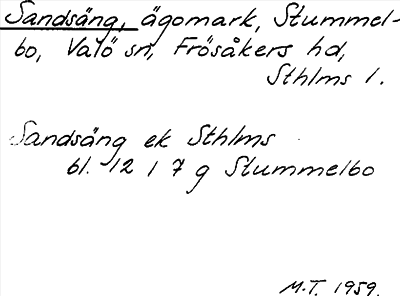 Sandsäng, ägomark, Stummel-
bo, Valö sn, Frösåkers hd,
Sthlms l.
Sandsäng ek Sthlms
bl. 12 I 7 g Stummelbo
M.T. 1959.